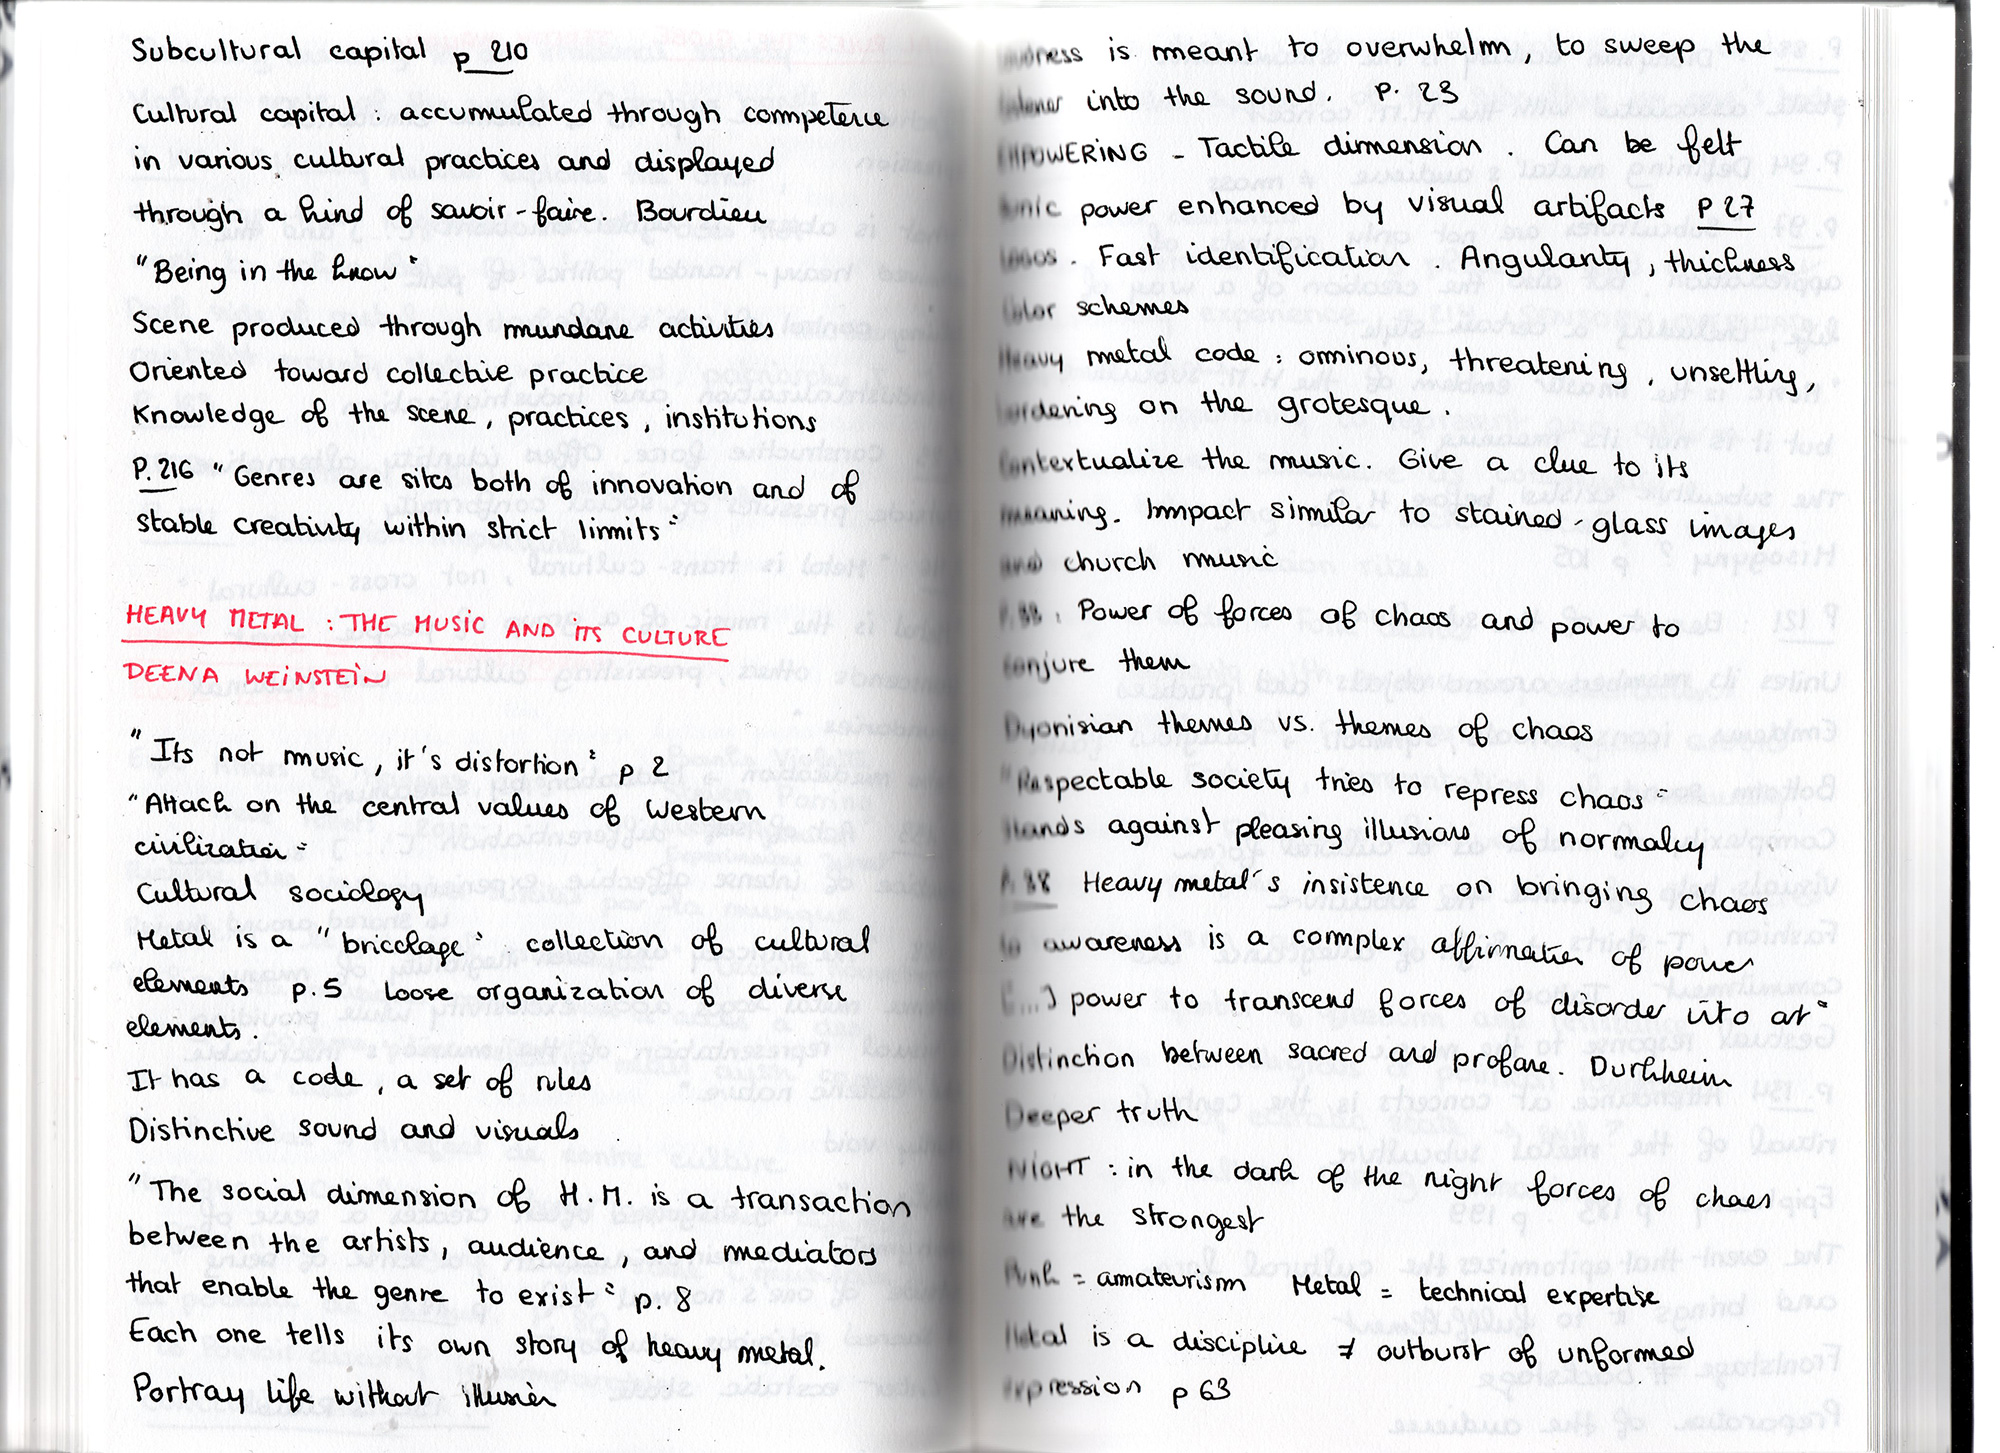 Subcultural capital p 210
Cultural capital : accumulated through competence
in various cultural practices and displayed
through a kind of savoir-faire. Bourdieu
"Being in the know"
Scene produced through mundane activities
Oriented toward collective practice
Knowledge of the scene, practices, institutions
P.216 "Genres are sites both of innovation and of
stable creativity within strict limits"
HEAVY METAL : THE MUSIC AND ITS CULTURE
DEENA WEINSTEIN
"Its not music, it's distortion" p 2
"Attack on the central values of Western
civilization"
Cultural sociology
Metal is a "bricolage" collection of cultural
elements p.5 Loose organization of diverse
elements.
It has a code, a set of rules
Distinctive sound and visuals
"The social dimension of H.M. is a transaction
between the artists, audience, and mediators
that enable the genre to exist" p. 8
Each one tells its own story of heavy metal.
Portray life without illusion
Loudness is meant to overwhelm, to sweep the
listener into the sound. P. 23
EMPOWERING - Tactile dimension. Can be felt
Sonic power enhanced by visual artifacts P 27
Logos. Fast identification. Angularity, thickness
Color schemes
Heavy metal code : ominous, threatening, unsettling,
bordering on the grotesque.
Contextualize the music. Give a clue to its
meaning. Impact similar to stained-glass images
and church music
Power of forces of chaos and power to
conjure them
Dyonisian themes vs. themes of chaos
"Respectable society tries to repress chaos"
Stands against pleasing illusions of normalcy
P.38 Heavy metal's insistence on bringing chaos
to awareness is a complex affirmation of power
[...] power to transcend forces of disorder into art"
Distinction between sacred and profane. Durkheim
Deeper truth
NIGHT : in the dark of the night forces of chaos
are the strongest
Punk = amateurism Metal = technical expertise
Metal is a discipline ≠ outburst of unformed
expression p 63